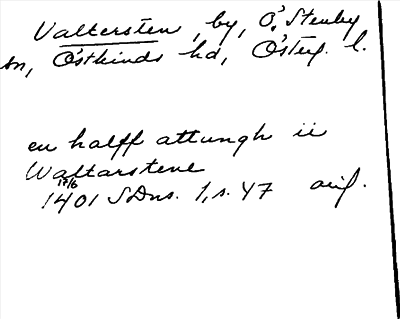 Valtersten, by, Ö. Stenby
sn, Östkinds hd, Österg. l.
en halff attungh ii
Waltarstene
17/6
1401 SDns. 1, s. 47 avs.